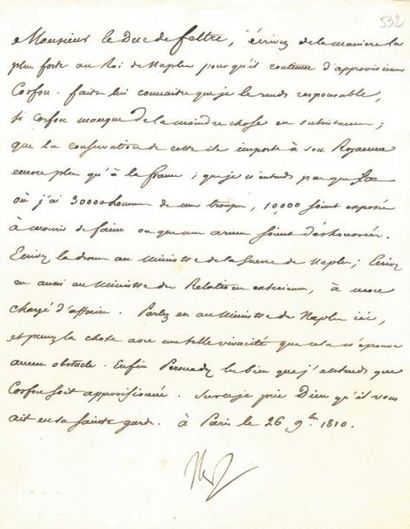 532
Monsieur le Duc de Feltre, écrivez de la manière la
plus forte au Roi de Naples pour qu'il continue d'approvisionner
Corfou. faites lui connaitre que je le rends responsable,
si Corfou manque de la moindre chose en subsistances;
que la conservation de cette ile importe à son Royaume
encore plus qu'à la france; que je n'entends pas que
où j'ai 30000 hommes de mes troupes, 10,000 soient exposés
à mourir de faim ou que mes armes soient déshonorées.
Ecrivez la dessus au Ministre de la Guerre de Naples; Ecrivez
en aussi au Ministre des Relations extérieures, à mon
chargé d'affaires. Parlez en au Ministre de Naples ici,
et prenez la chose avec une telle vivacité que cela n'éprouve
aucun obstacle. Enfin Persuadez les bien que j'entends que
Corfou soit approvisionné. Sur ce je prie Dieu qu'il vous
ait en sa sainte garde. à Paris le 26 9bre 1810.